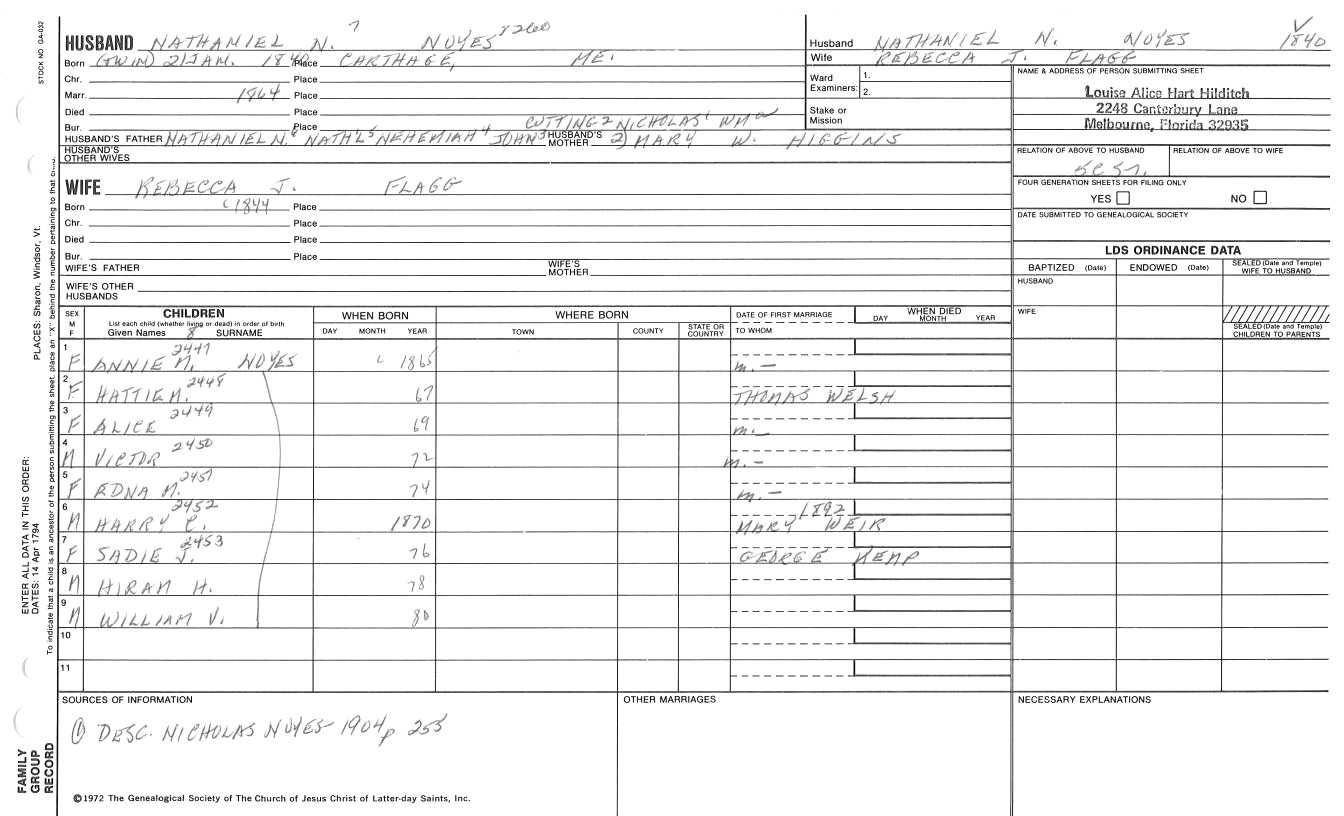 STOCK NO. GA-032
PLACES: Sharon, Windsor, Vt.
ENTER ALL DATA IN THIS ORDER:
DATES: 14 Apr 1794
To indicate that a child is an ancestor of the person submitting the sheet, place an "X" behind the number pertaining to that
FAMILY GROUP RECORD
HUSBAND NATHANIEL N. 7 NOYES 8260
Born (TWIN) 21 JAN. 1840 Place CARTHAGE, ME.
Chr. Place
Marr. 1864 Place
Died Place
Bur. Place
CUTTING 2 NICHOLAS 1 WM
HUSBAND'S FATHER NATHANIEL N. 6 NATH'L 5 NEHEMIAH 4 JOHN 3 HUSBAND'S MOTHER 2) MARY W. HIGGINS
HUSBAND'S OTHER WIVES
WIFE REBECCA J. FLAGG
Born c 1844 Place
Chr. Place
Died Place
Bur. Place
WIFE'S FATHER WIFE'S MOTHER
WIFE'S OTHER HUSBANDS
Husband NATHANIEL N. NOYES 1840
Wife REBECCA J. FLAGG
Ward Examiners: 1.
2.
Stake or Mission
NAME & ADDRESS OF PERSON SUBMITTING SHEET
Louise Alice Hart Hilditch
2248 Canterbury Lane
Melbourne, Florida 32935
RELATION OF ABOVE TO HUSBAND RELATION OF ABOVE TO WIFE
FOUR GENERATION SHEETS FOR FILING ONLY
YES NO
DATE SUBMITTED TO GENEALOGICAL SOCIETY
LDS ORDINANCE DATA
BAPTIZED (Date) ENDOWED (Date) SEALED (Date and Temple) WIFE TO HUSBAND
HUSBAND
WIFE
SEALED (Date and Temple) CHILDREN TO PARENTS
SEX M F
CHILDREN
List each child (whether living or dead) in order of birth
Given Names 8 SURNAME
WHEN BORN
DAY MONTH YEAR
WHERE BORN
TOWN COUNTY STATE OR COUNTRY
DATE OF FIRST MARRIAGE
TO WHOM
WHEN DIED
DAY MONTH YEAR
1 F ANNIE M. 2447 NOYES c 1865 m. -
2 F HATTIE M. 2448 67 THOMAS WELSH
3 F ALICE 2449 69 m. -
4 M VICTOR 2450 72 m. -
5 F EDNA M. 2451 74 m. -
6 M HARRY C. 2452 1870 1892 MARY WEIR
7 F SADIE J. 2453 76 GEORGE KEMP
8 M HIRAM H. 78
9 M WILLIAM V. 80
10
11
SOURCES OF INFORMATION
① DESC. NICHOLAS NOYES - 1904 p 255
OTHER MARRIAGES
NECESSARY EXPLANATIONS
©1972 The Genealogical Society of The Church of Jesus Christ of Latter-day Saints, Inc.